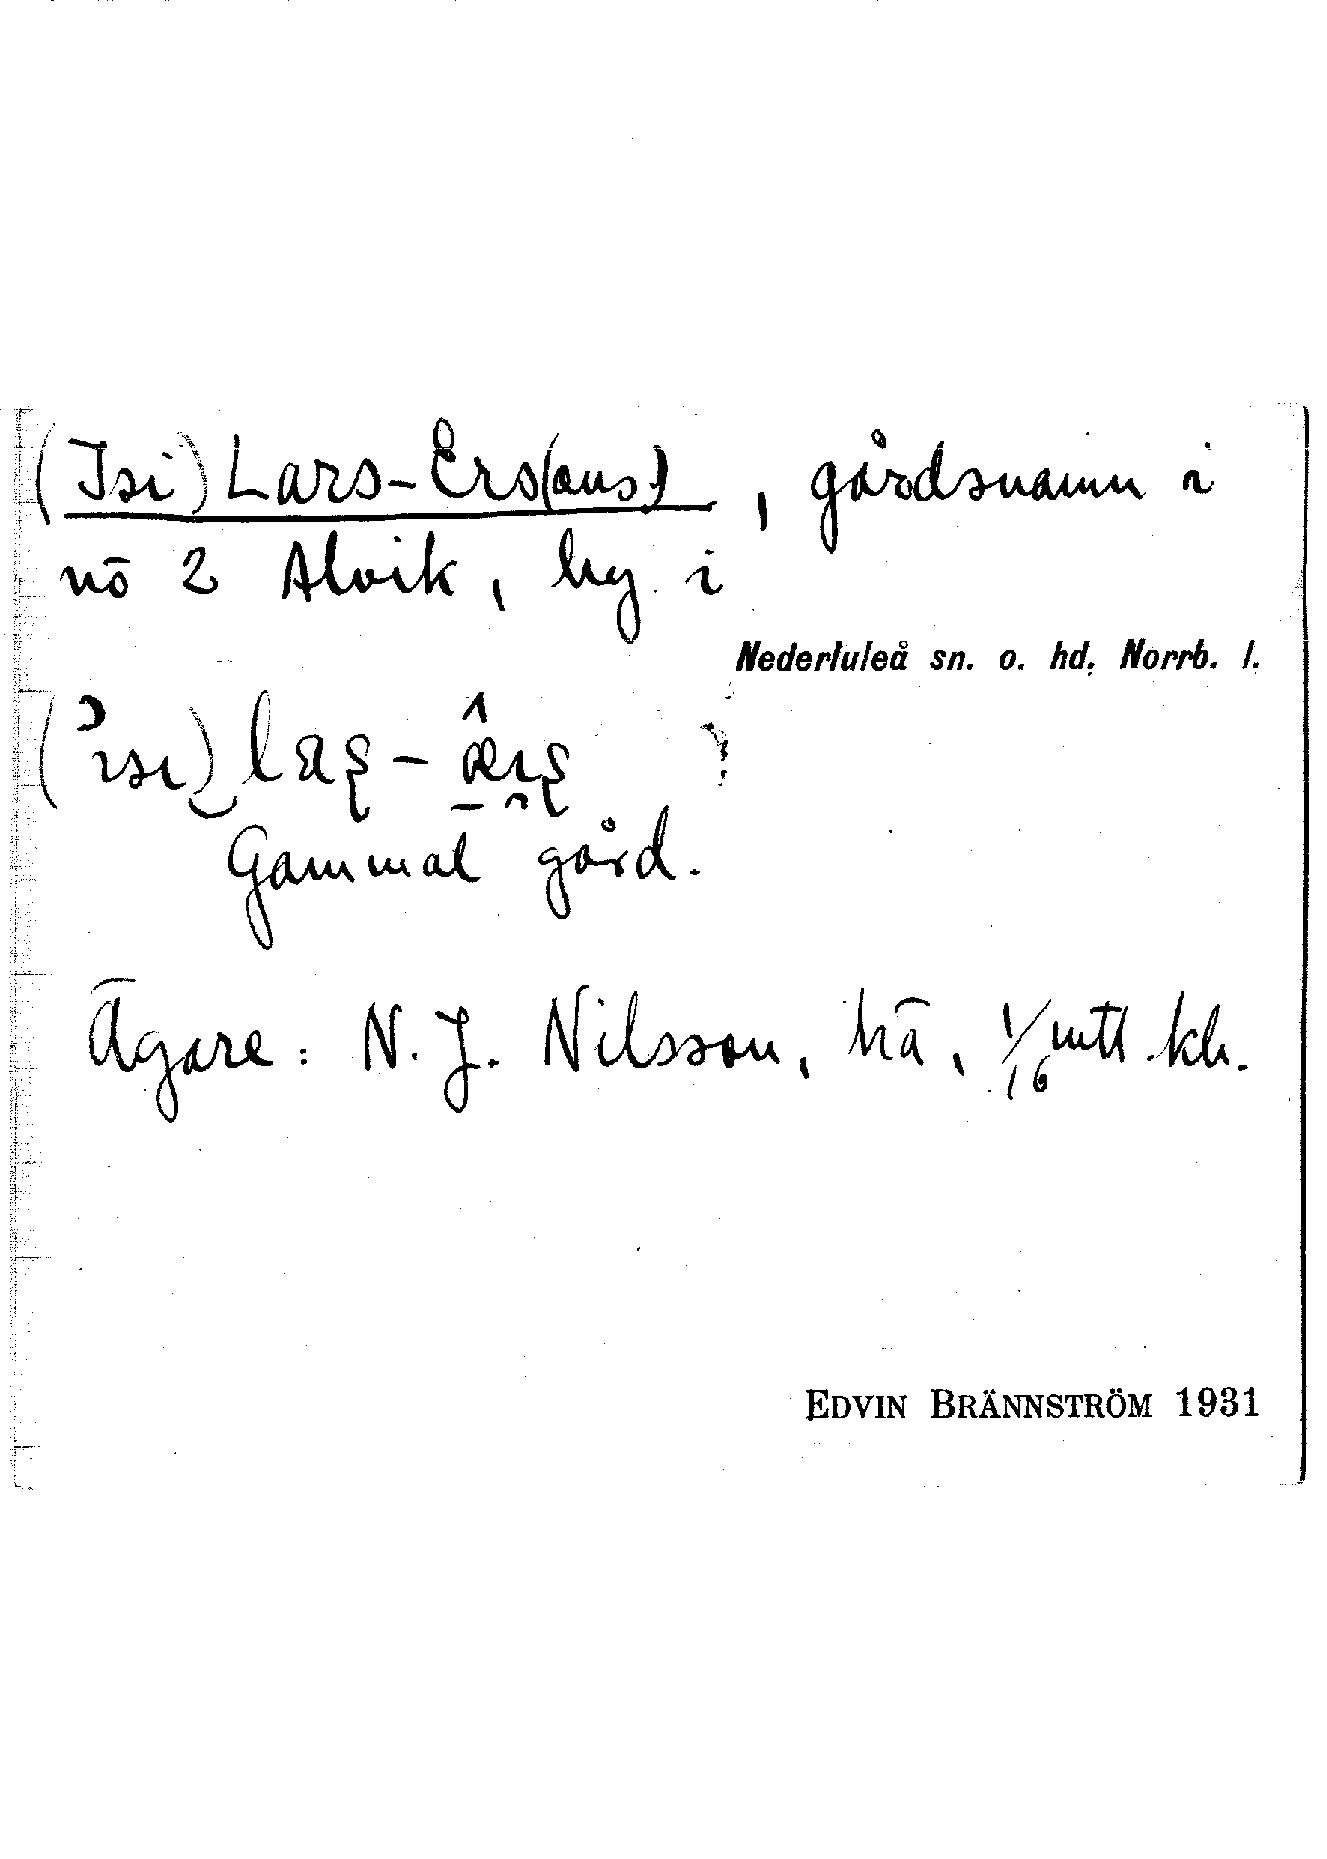 (Isi) Lars-Ers(ans), gårdsnamn i
nö 2 Alvik, by i
Nederluleå sn. o. hd. Norrb. l.
Gammal gård.
Ägare: N. J. Nilsson, hä, 1/16 mtl kr.
EDVIN BRÄNNSTRÖM 1931